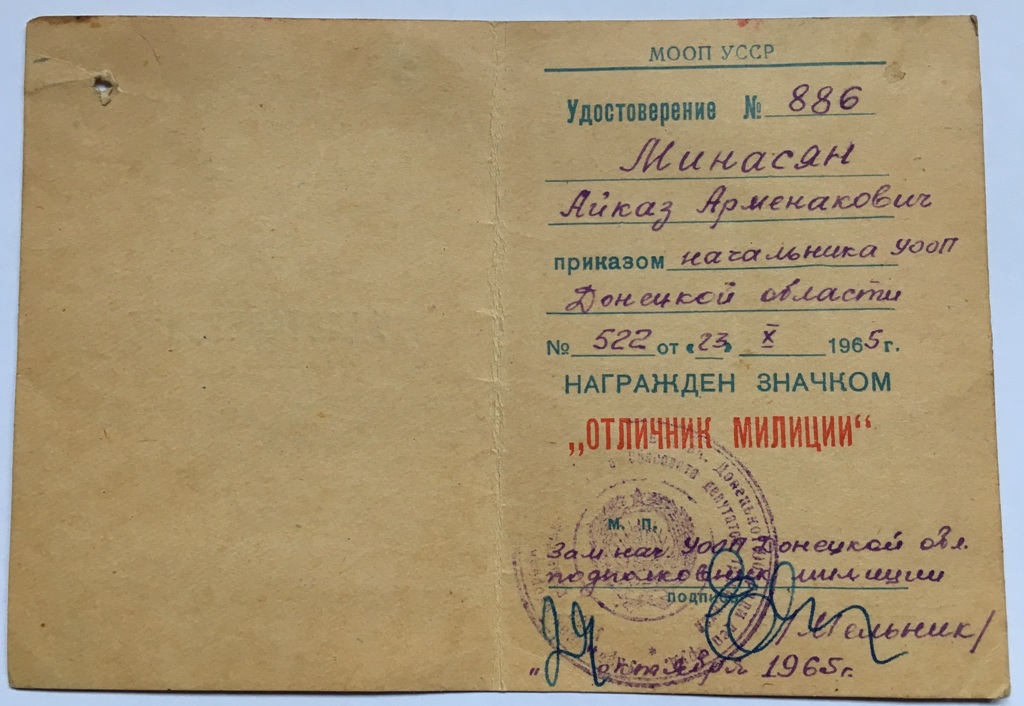 МООП УССР
Удостоверение № 886
Минасян
Айказ Арменакович
приказом начальника УООП
Донецкой области
№ 522 от «23» X 1965 г.
НАГРАЖДЕН ЗНАЧКОМ
„ОТЛИЧНИК МИЛИЦИИ“
м. п.
Зам нач. УООП Донецкой обл.
подполковник милиции
подпись
/Мельник/
„ октября 1965 г.